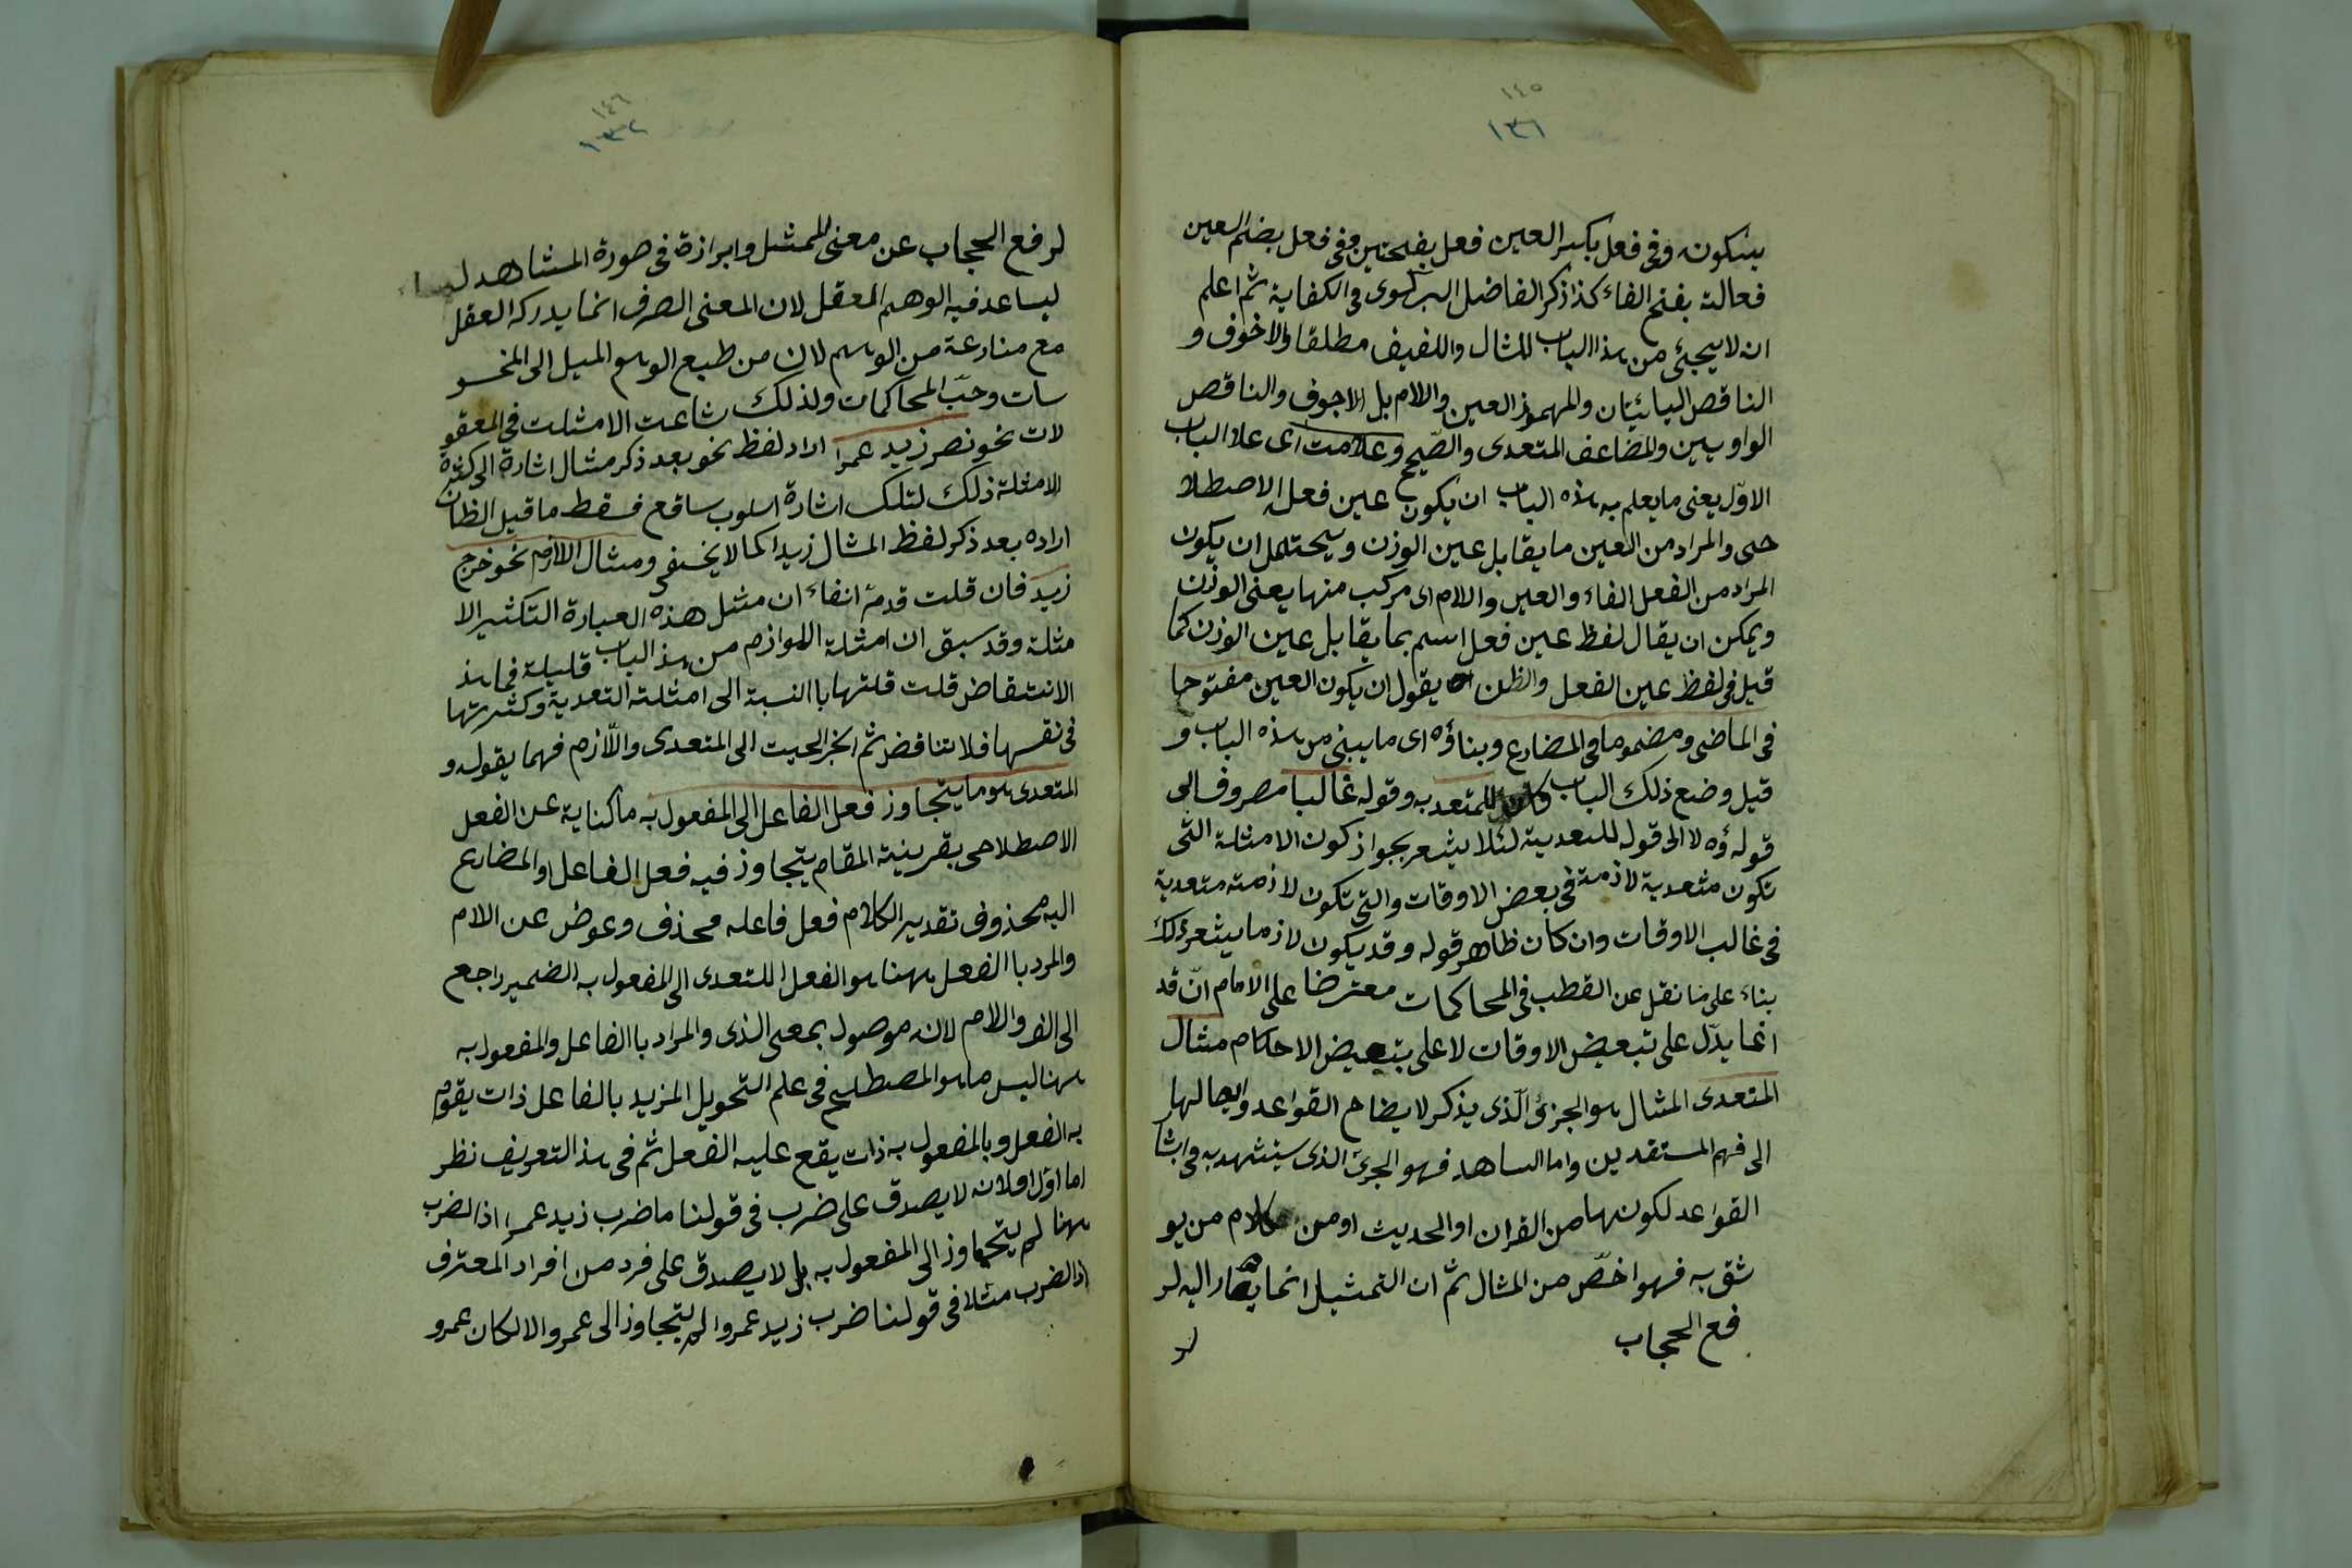 ١٤٥
١٣١
بسكون وفى فعل بكسر العين فعل بفتحتين وفى فعل بضم العين
فعالة بفتح الفاء كذا ذكر الفاضل البركوى فى الكفاية ثم اعلم
انه لا يجئ من هذا الباب المثال واللفيف مطلقا والاخوف و
الناقص اليائيتان والمهموز العين واللام بل الاجوف والناقص
الواويين والمضاعف المتعدى والصّحيح وعلامت اى علا الباب
الاوّل يعنى ما يعلم به هذه الباب ان يكون عين فعله الاصطلا
حى والمراد من العين ما يقابل عين الوزن ويحتمل ان يكون
المراد من الفعل الفاء والعين واللام اى مركب منها يعنى الوزن
ويمكن ان يقال لفظ عين فعل اسم بما يقابل عين الوزن كما
قيل فى لفظ عين الفعل والظن يقول ان يكون العين مفتوحا
فى الماضى ومضموما فى المضارع وبناؤه اى ما يبنى من هذه الباب و
قيل وضع ذلك الباب للمتعد به وقوله غالبا مصروف الى
قوله ؤه لا الى قول للتعدية لئلا يشعر بجواز كون الامثلة التى
تكون متعدية لازمة فى بعض الاوقات والتى تكون لازمته متعدية
فى غالب الاوقات وان كان ظاهر قوله وقد يكون لازما يشعر ذلك
بناء على ما نقل عن القطب فى المحاكمات معترضا على الامام انّ قد
انما يدّل على تبعيض الاوقات لا على بتبعيض الاحكام مثال
المتعدى المثال هو الجزئ الّذى يذكر لايضاح القواعد وايصالها
الى فهم المستقدين واما الساهد فهو الجرئ الذى سيتشهد به فى اثبا
القواعد لكونها من القران او الحديث او من كلام من يو
شق به فهو اخصّ من المثال ثمّ ان التمثيل انما يصار اليه لر
فع الحجاب
لر
١٤٦
١٣٢
لرفع الحجاب عن معنى الممثل وابرازة فى صورة المشاهد
ليساعد فيه الوهم المعقل لان المعنى الصرف انما يدركه العقل
مع منارعة من الوهم لان من طبع الوهم الميل الى المخسو
سات وحبّ المحاكمات ولذلك شاعت الامثلت فى المعقو
لات نحو نصر زيد عمرا اراد لفظ نحو بعد ذكر مثال اشارة الى كثرة
الامثلة ذلك لتلك اشارة اسلوب ساقع فسقط ما قيل الظان
اراده بعد ذكر لفظ المثال زيدا كما لا يخفى ومثال اللازم نحو خرج
زيد فان قلت قدمة انفاء ان مثل هذه العبارة التكثير الا
مثلة وقد سبق ان امثلة اللوازم من هذ الباب قليلة فما هذ
الانتقاض قلت قلتها باالنسبة الى امثلة التعدية وكثرتها
فى نفسها فلا تناقض ثم انجر الحيت الى المتعدى واللّازم فهما يقوله و
المتعدى هو ما يتجاوز فعل الفاعل الى المفعول به ما كناية عن الفعل
الاصطلاحى بقرينة المقام يتجاوز فيه فعل الفاعل والمضارع
اليه محذوف تقدير الكلام فعل فاعله محذف وعوض عن الام
والمرد باالفعل ههنا هو الفعل اللتعدى الى المفعول به الضمير راجع
الى الف والام لانه موصول بمعى الذى والمراد باالفاعل والمفعول به
ههنا ليس ما هو المصطلح فى علم التحويل المزيد بالفاعل ذات يقوم
به الفعل وبالمفعول به ذات يقع عليه الفعل ثم فى هذ التعريف نظر
اما اوّل افلانه لا يصدق على ضرب فى قولنا ما ضرب زيد عمرا اذ الضرب
ههنا لم يتجاوز الى المفعول به بل لا يصدق على فرد من افراد المعترف
اذ الضرب مثلا فى قولنا ضرب زيد عمروا لم يتجاوز الى عمرو والا لكان عمرو